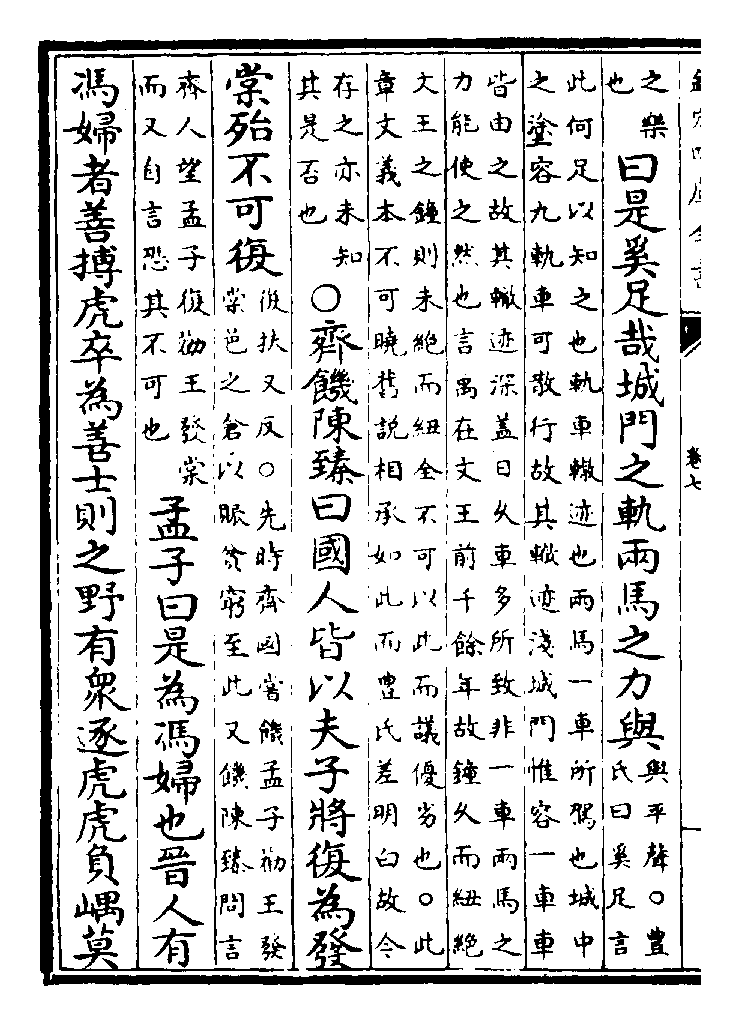 欽定四庫全書
卷七
之樂
也
曰是奚足哉城門之軌兩馬之力與
與平聲○豐
氏曰奚足言
此何足以知之也軌車轍迹也兩馬一車所駕也城中
之塗容九軌車可散行故其轍迹淺城門惟容一車車
皆由之故其轍迹深蓋日久車多所致非一車兩馬之
力能使之然也言禹在文王前千餘年故鐘久而紐絶
文王之鐘則未絶而紐全不可以此而議優劣也○此
章文義本不可曉舊說相承如此而豐氏差明白故今
存之亦未知
其是否也
○齊饑陳臻曰國人皆以夫子將復為發
棠殆不可復
復扶又反○先時齊國嘗饑孟子勸王發
棠邑之倉以賑貧窮至此又饑陳臻問言
齊人望孟子復勸王發棠
而又自言恐其不可也
孟子曰是為馮婦也晉人有
馮婦者善搏虎卒為善士則之野有衆逐虎虎負嵎莫